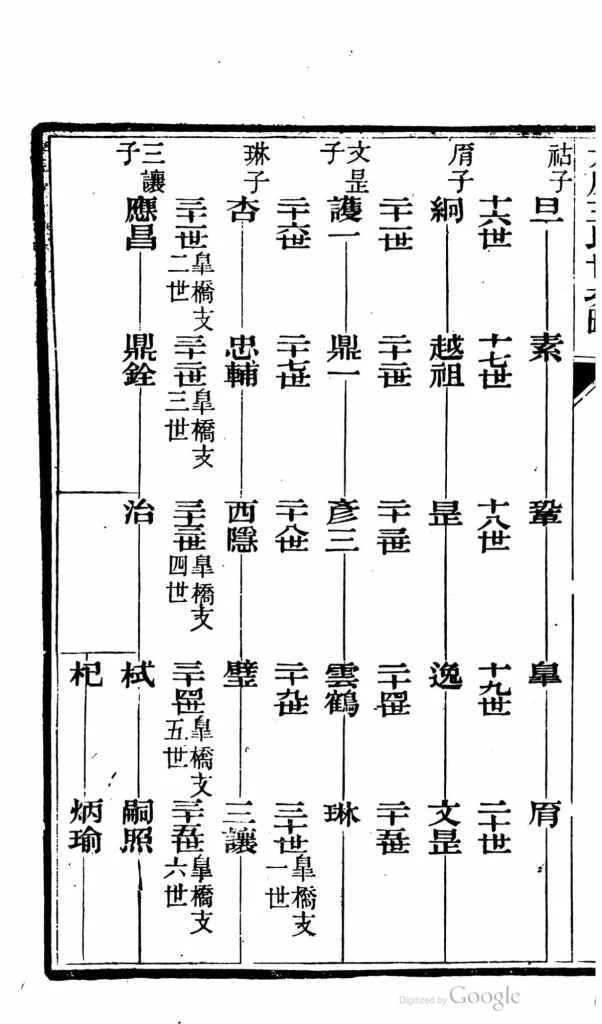 祜子 旦 素 鞏 皐
十六世 十七世 十八世 十九世 二十世
子 絅 越祖 昰 逸 文昰
二十一世 二十二世 二十三世 二十四世 二十五世
文昰子 護一 鼎一 彥三 雲鶴 琳
二十六世 二十七世 二十八世 二十九世 三十世 皐橋支一世
琳子 杏 忠輔 西隱 璧 三讓
三十一世 皐橋支二世 三十二世 皐橋支三世 三十三世 皐橋支四世 三十四世 皐橋支五世 三十五世 皐橋支六世
三讓子 應昌 鼎銓 治 栻 嗣照
杞 炳瑜
Digitized by Google